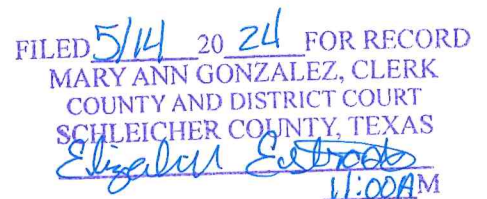 FILED 5/14 20 24 FOR RECORD
MARY ANN GONZALEZ, CLERK
COUNTY AND DISTRICT COURT
SCHLEICHER COUNTY, TEXAS
Elizabeth Estrada
11:00AM